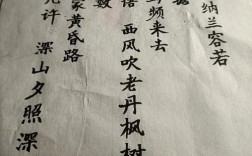 纳兰容若
频来去
语 西风吹老丹枫树
数
冢黄昏路
许 深山夕照深